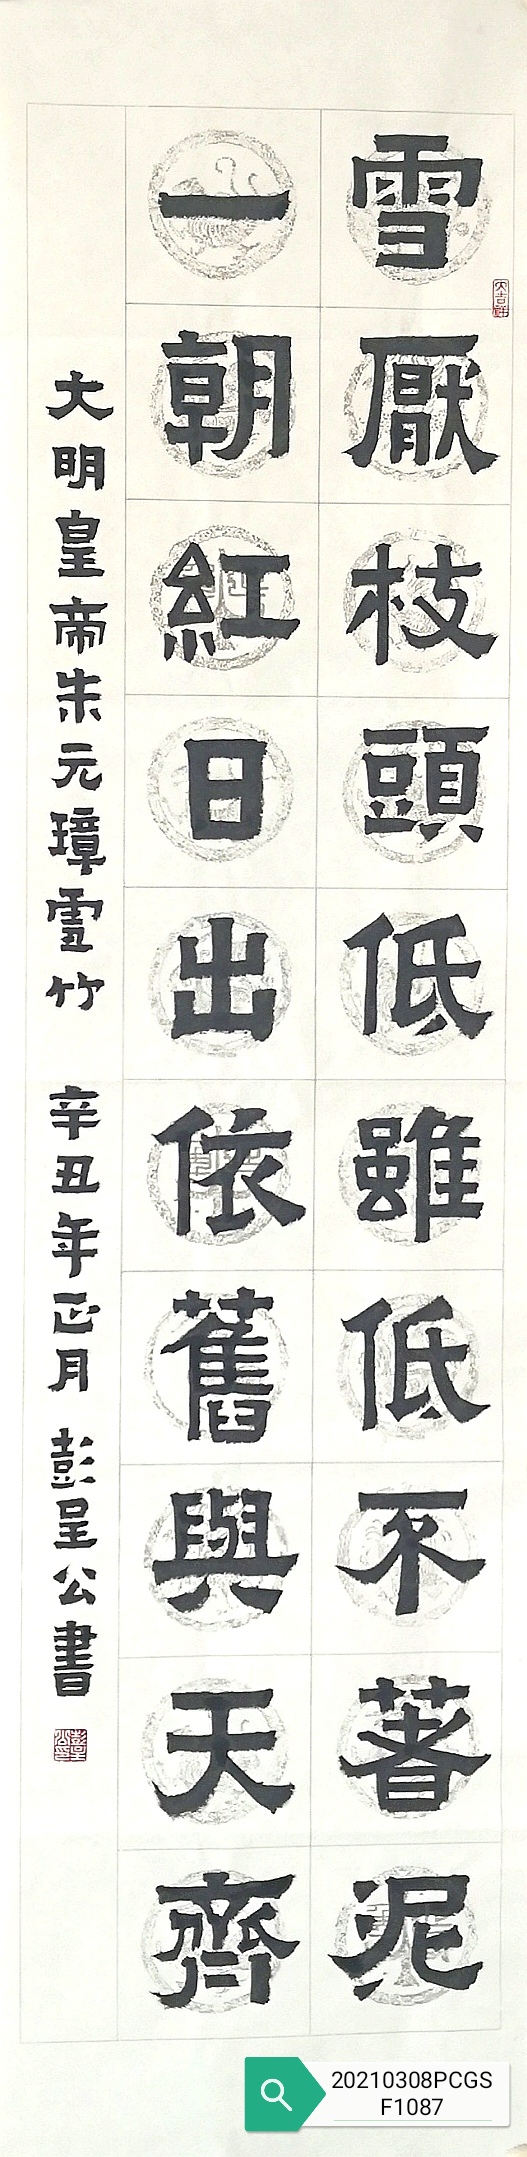 雪厭枝頭低雖低不著泥
大吉祥
一朝紅日出依舊與天齊
大明皇帝朱元璋雪竹 辛丑年正月 彭呈公書
20210308PCGS
F1087